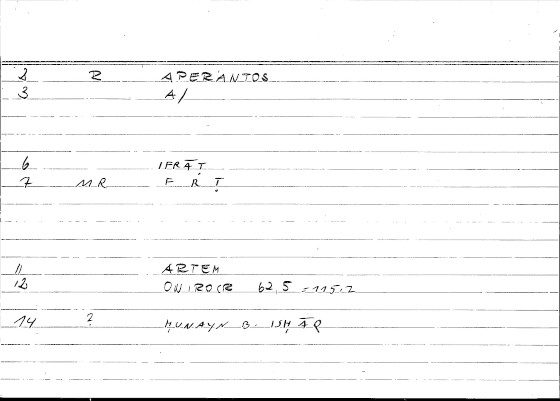 2 R APERANTOS
3 A/
6 IFRĀṬ
7 MR F R Ṭ
11 ARTEM
12 ONIROCR 62,5 - 115.2
14 ? ḤUNAYN B. ISḤĀQ